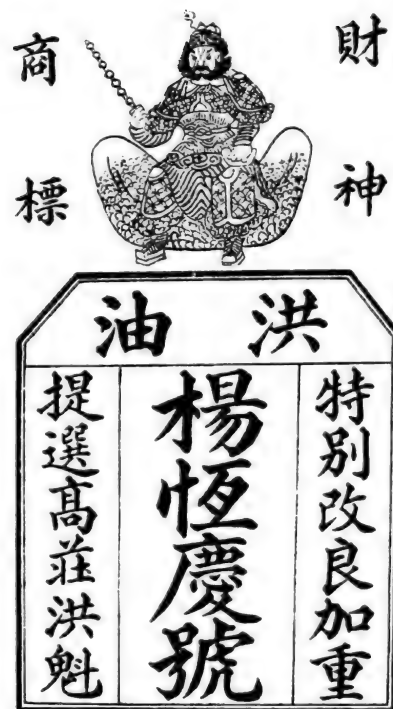 財神
商標
洪油
特别改良加重
楊恆慶號
提選髙莊洪魁